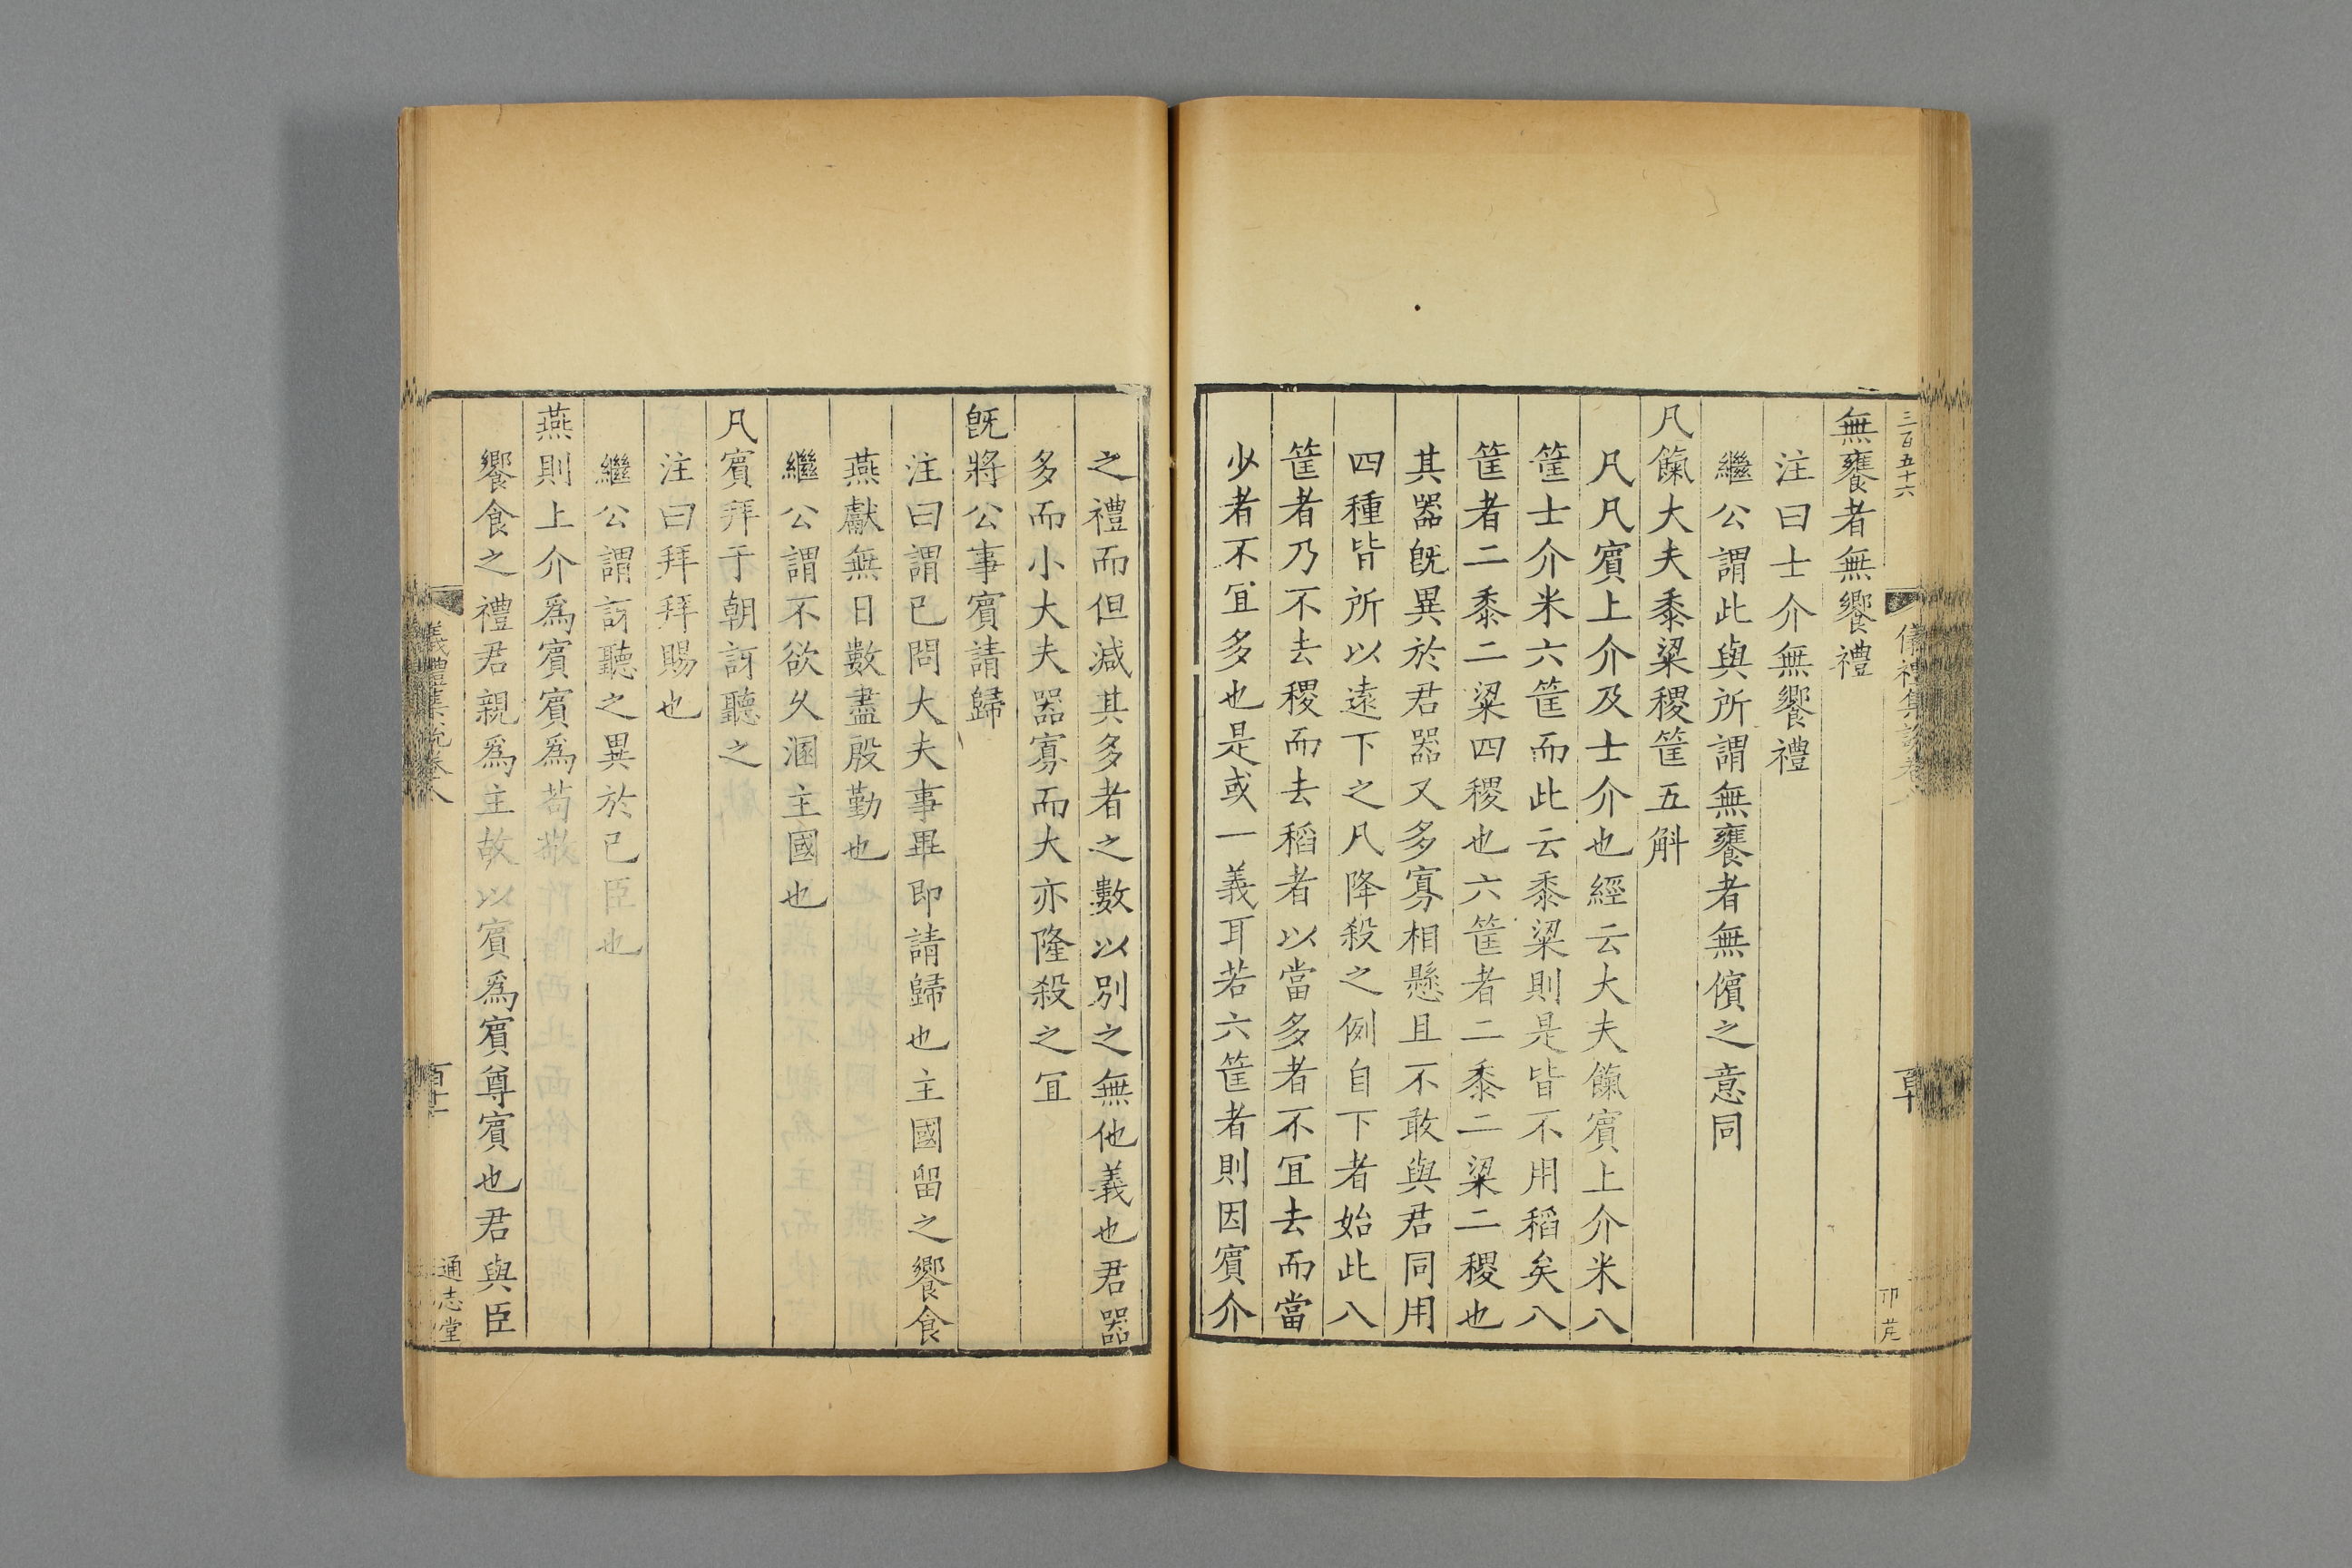 三百五十六
儀禮集說卷八
卬芑
無饔者無饗禮
注曰士介無饗禮
繼公謂此與所謂無饔者無儐之意同
凡餼大夫黍粱稷筐五斛
凡凡賓上介及士介也經云大夫餼賓上介米八
筐士介米六筐而此云黍粱則是皆不用稻矣八
筐者二黍二粱四稷也六筐者二黍二粱二稷也
其器旣異於君器又多寡相懸且不敢與君同用
四種皆所以遠下之凡降殺之例自下者始此八
筐者乃不去稷而去稻者以當多者不冝去而當
少者不冝多也是或一義耳若六筐者則因賓介
之禮而但減其多者之數以別之無他義也君器
多而小大夫器寡而大亦隆殺之冝
旣將公事賓請歸
注曰謂已問大夫事畢即請歸也主國留之饗食
燕獻無日數盡殷勤也
繼公謂不欲久溷主國也
凡賓拜于朝訝聽之
注曰拜拜賜也
繼公謂訝聽之異於已臣也
燕則上介爲賓賓爲苟敬
饗食之禮君親爲主故以賓爲賓尊賓也君與臣
儀禮集說卷八
通志堂